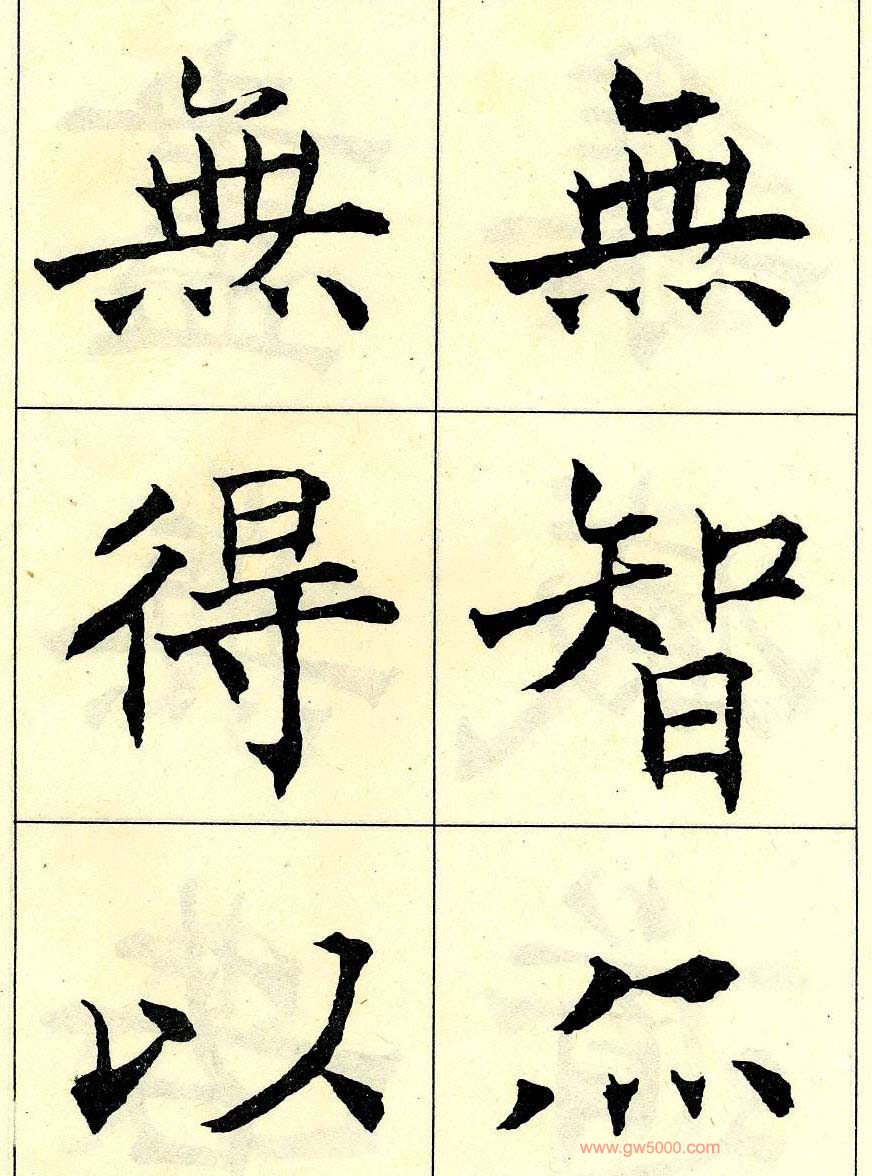 無智亦
無得以
www.gw5000.com